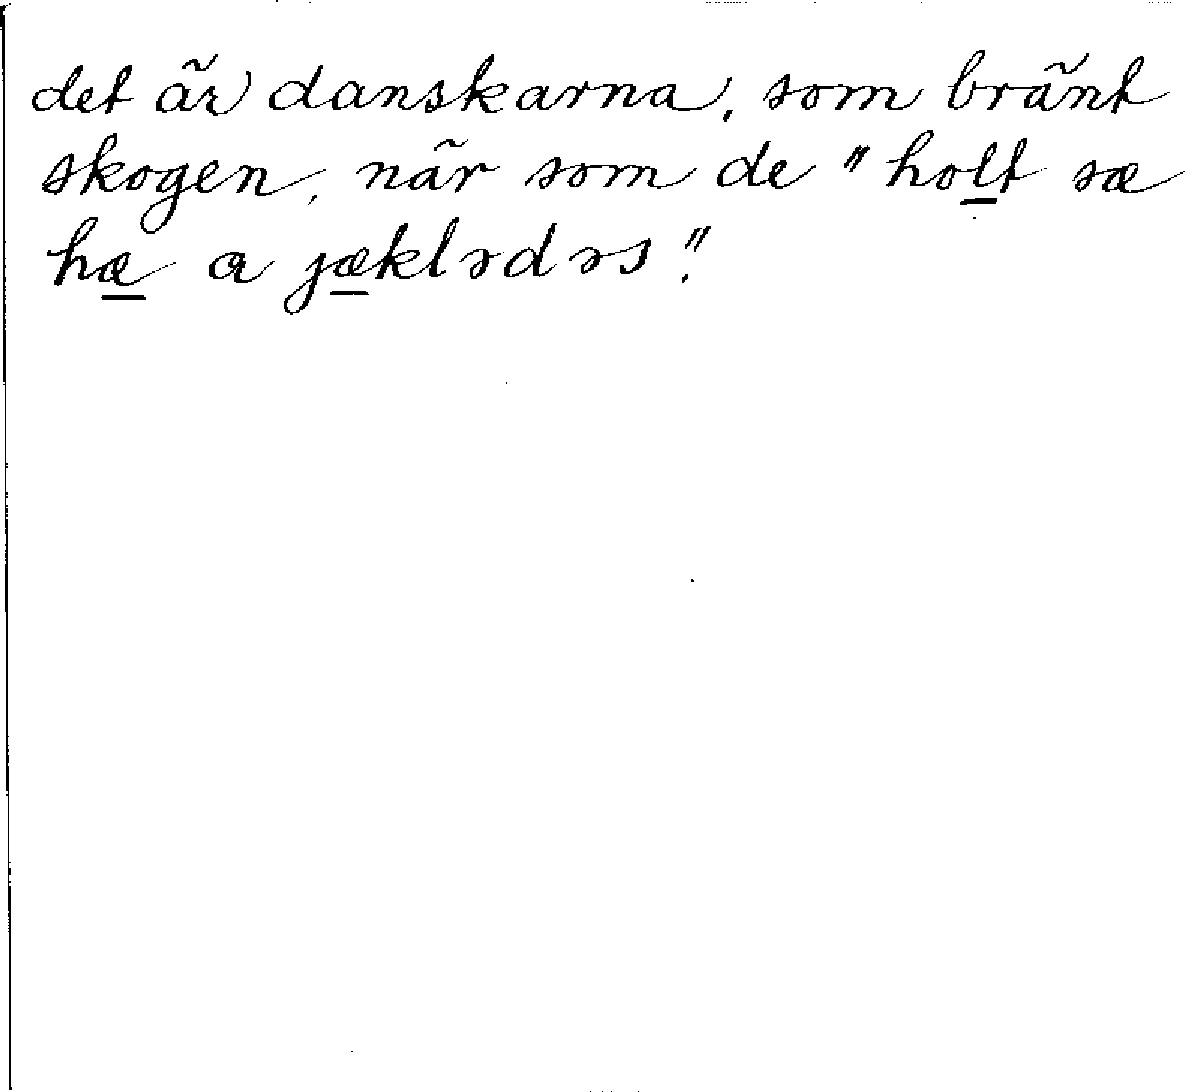 det är danskarna, som bränt
skogen, när som de "holt sæ
hæ a jæklədəs".